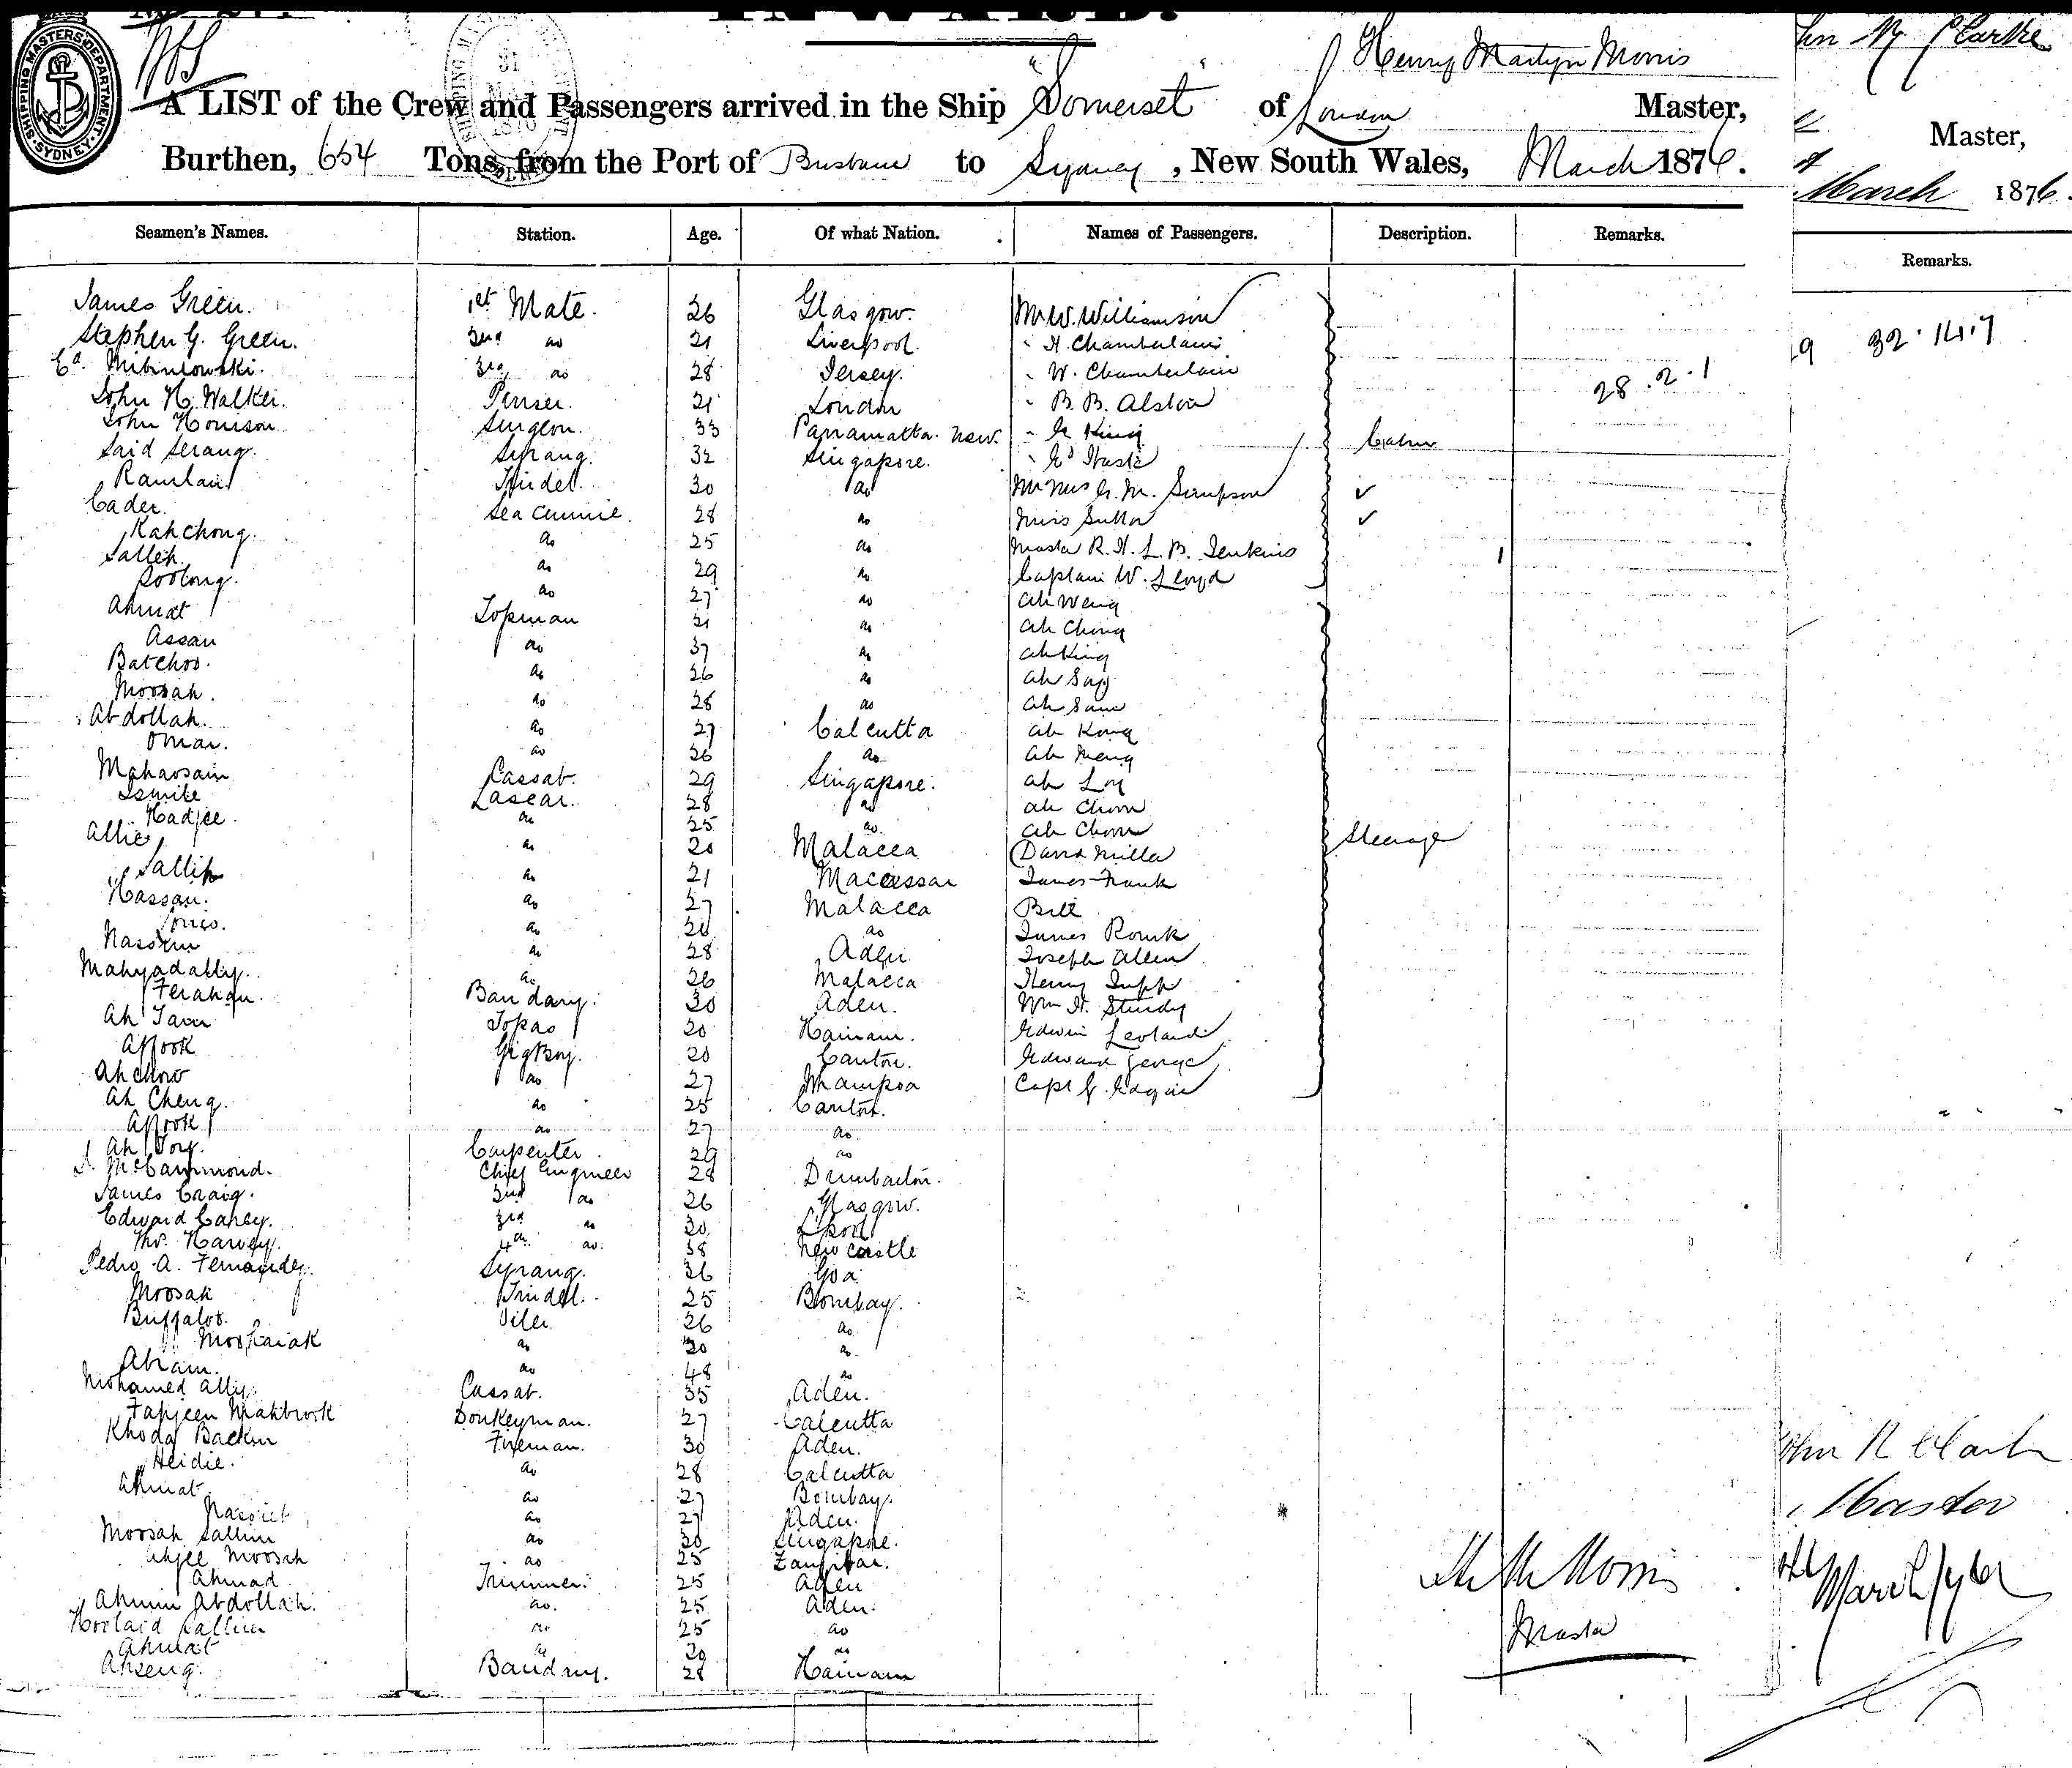 INWARD.
SHIPPING MASTERS DEPARTMENT SYDNEY
Henry Martyn Morris
A LIST of the Crew and Passengers arrived in the Ship "Somerset" of London Master,
Burthen, 654 Tons, from the Port of Brisbane to Sydney, New South Wales, March 1876.
Clarke
Master,
March 1876.
Seamen's Names. Station. Age. Of what Nation. Names of Passengers. Description. Remarks.
Remarks.
James Green. 1st Mate. 26 Glasgow. Mr W. Williamson
Stephen G. Green. 2nd do 21 Liverpool. " H. Chamberlain
3rd do 28 Jersey. " W. Chamberlain
John H. Walker. Purser. 21 London " B. B. Alston 28.2.1
John Houison Surgeon. 33 Parramatta. NSW. " G King
Said Serang. Syrang. 32 Singapore. Cabin
Ramlan Tindel. 30 do Mr Mrs G. M. Simpson
Cader. Sea Cunnie. 28 do Miss Sutton
Kahchong. do 25 do Master R. H. L. B. Jenkins
Salleh. do 29 do Captain W. Lloyd
do 27 do Ah Weng
Ahmat Topman 31 do Ah Chong
Assan do 37 do Ah King
Batchoo. do 26 do Ah Say
Moosah. do 28 do Ah Sam
Abdollah. do 27 Calcutta Ah Kong
Omar. do 26 do Ah Meng
Mahassain Cassab. 29 Singapore. Ah Loy
Ismile Lascar. 28 do Ah Chow
Hadjee. do 25 do Ah Chow
Allie do 20 Malacca David Miller Steerage
Sallih do 21 Macassar James Frank
Hassan. do 27 Malacca Bill
do 20 do James Rourk
Nassim do 28 Aden Joseph Allen
Mahyadally. do 26 Malacca Henry Tupp
Bandary. 30 Aden. Wm H. Sturdy
Topas 20 Hainam. Edwin Leoland
Affook Gigboy. 20 Canton. Edward George
Ah Chow do 27 Whampoa Capt G. Edgar
Ah Cheng. do 25 Canton.
Affook do 27 do
Carpenter 29 do
McCammond. Chief Engineer 28 Dumbarton.
James Craig. 2nd do 26 Glasgow.
Edward Carey. 3rd do 30 L'pool
Thos. Harvey. 4th do. 38 Newcastle
Pedro A. Fernandez. Syrang. 36 Goa
Moosah Tindel. 25 Bombay.
Buffaloo. Oiler. 26 do
do 30 do
Abram. do 48 do
Mohamed Ally. Cassab. 35 Aden.
Mahbrook Donkeyman. 27 Calcutta
Khoda Backsu Fireman. 30 Aden.
Heidie. do 28 Calcutta
Ahmat do 27 Bombay.
do 27 Aden.
Moosah Sallim do 30 Singapore.
Moosah do 25 Zanzibar.
Ahmad Trimmer. 25 Aden
Abdollah. do. 25 Aden.
Sallim do 25 do
Ahmat do 20 do
Ahseng. Bandary. 28 Hainam
32.14.7
Morris
Master
John R Clark
Master
March /76